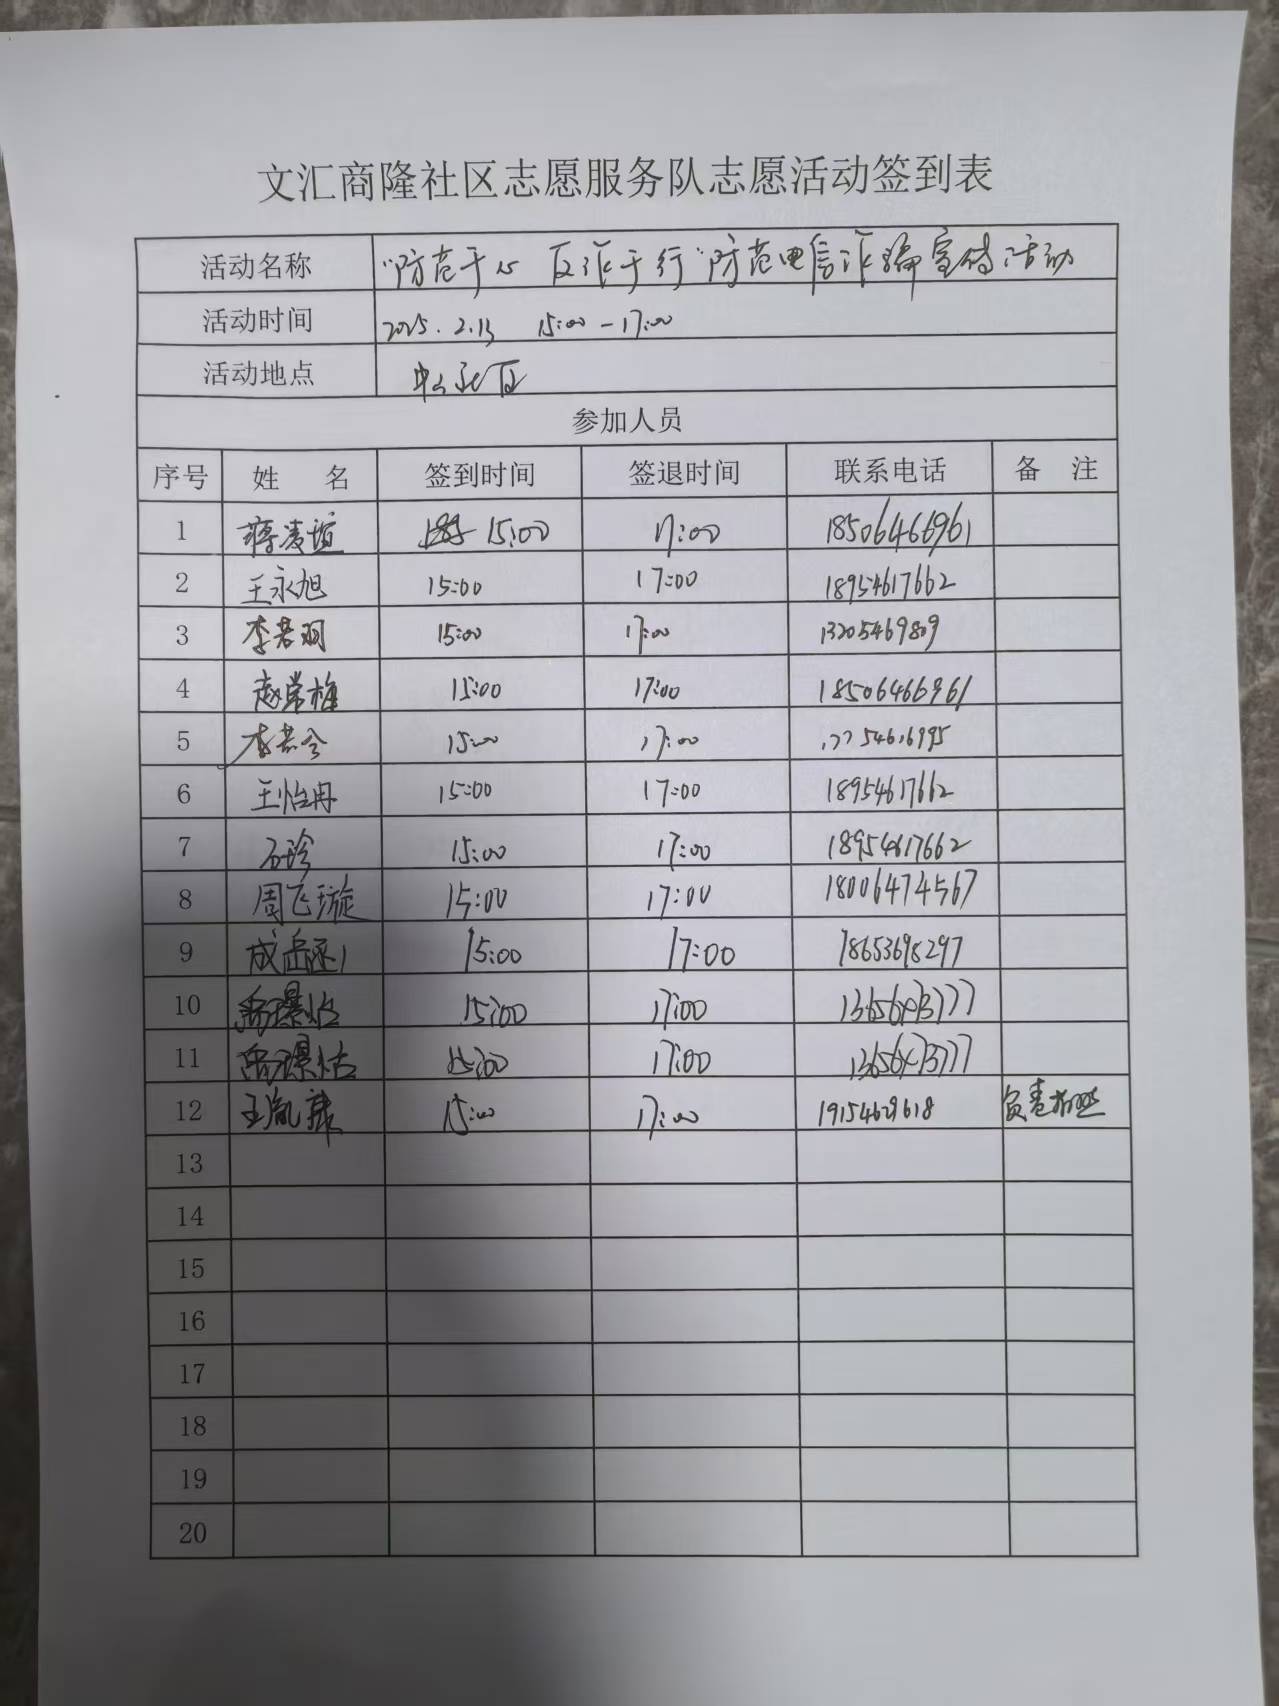 文汇商隆社区志愿服务队志愿活动签到表
活动名称 "防范于心 反诈于行"防范电信诈骗宣传活动
活动时间 2025.2.13 15:00-17:00
活动地点
参加人员
序号 姓 名 签到时间 签退时间 联系电话 备 注
1 蒋凌萱 15:00 17:00 18506466961
2 王永旭 15:00 17:00 18954617662
3 李若羽 15:00 17:00 13205469809
4 赵常梅 15:00 17:00 18506466961
5 李若兮 15:00 17:00
6 王怡冉 15:00 17:00 18954617662
7 石珍 15:00 17:00 18954617662
8 周飞璇 15:00 17:00 18006474567
9 15:00 17:00 18653698297
10 15:00 17:00
11 15:00 17:00
12 15:00 17:00 19154629618 负责拍照
13
14
15
16
17
18
19
20